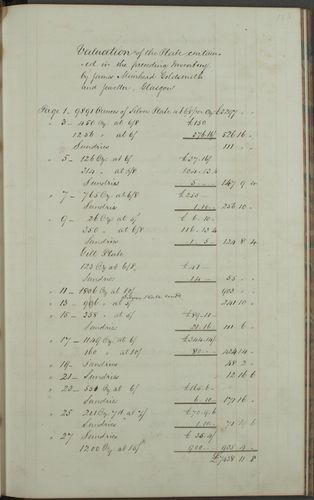 Valuation of the Plate contain
-ed in the preceding Inventory
by James Muirhead Goldsmith
and Jeweller, Glasgow
Page 1 - 9891 Ounces of Silver Plate at 6/8 per Oz £3297 " -
" 3 - 450 Oz at 6/8 £150
1256 " at 6/ 376.16/ 526 16 -
Sundries 111 " -
" 5 - 126 Oz at 6/ £37.16/
314 " at 6/8 104.13.4
Sundries 5 - - 147 9 4
" 7 - 765 Oz at 6/8 £255 -
Sundries 1.10 - 256 10 -
" 9 - 26 Oz at 5/ £6.10 -
350 " at 6/8 116.13.4
Sundries 1 . 5 - 124 8 4
Gilt Plate
123 Oz at 6/8 £41 -
Sundries 14 - 55 - -
" 11 - 1806 Oz at 10/ 903 " -
" 13 - at 5/ 241 10 -
" 15 - 358 " at 5/ £89.10 -
Sundries 21.16 111 6 -
" 17 - 1149 Oz at 6/ £344.14/
160 " at 10/ 80 - - 424 14 -
" 19 - Sundries 48 2 -
" 21 - Sundries 12 16 6
" 23 - 551 Oz at 6/ £165.6 -
Sundries 6.10 - 171 16 -
" 25 201 Oz 7d at 7/ £70.9.6
Sundries 1.10 - 71 19 6
" 27 Sundries £ 5.4/
1200 Oz at 15/ 900 - - 905 4 -
£7438 11 8